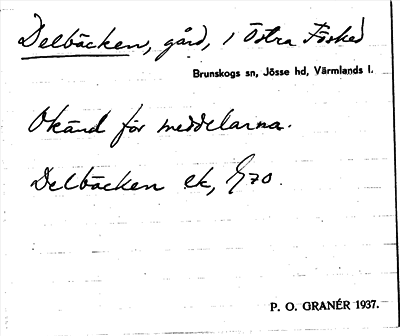 Delbäcken, gård, i Östra Fösked
Brunskogs sn, Jösse hd, Värmlands l.
Okänd för meddelarna.
Delbäcken ek, G70.
P. O. GRANÉR 1937.